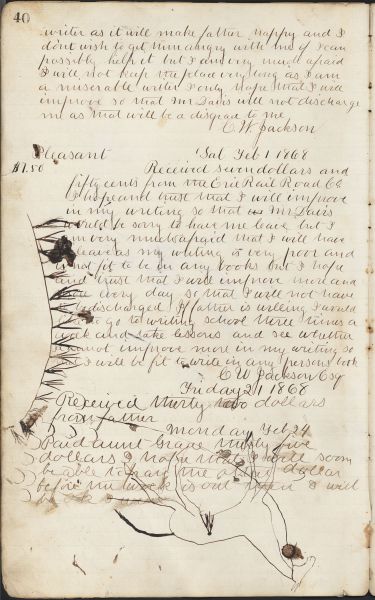 40
writer as it will make father happy and I
dont wish to get him angry with me if I can
possibly help it but I am very much afraid
I will not keep the place very long as I am
a miserable writer I only hope that I will
improve so that Mr Davis will not discharge
me as that will be a disgrace to me
C W Jackson
Pleasant Sat Feb 1 1868
$7.50 Received seven dollars and
fifty cents from the Erie Rail Road Co
I hope and trust that I will improve
in my writing so that Mr Davis
would be sorry to have me leave but I
am very much afraid that I will have
leave as my writing is very poor and
is not fit to be in any books but I hope
and trust that I will improve more and
more every day so that I will not have
discharged If father is willing I would
like to go to writing school three times a
week and take lessons and see whether
cannot improve more in my writing so
that I will be fit to write in any persons book
C W Jackson Esq
Friday 21 1868
Received thirty two dollars
from father
Monday Feb 24
Paid aunt Grace thirty five
dollars I hope that I will soon
be able to
before the week is out then I will
be